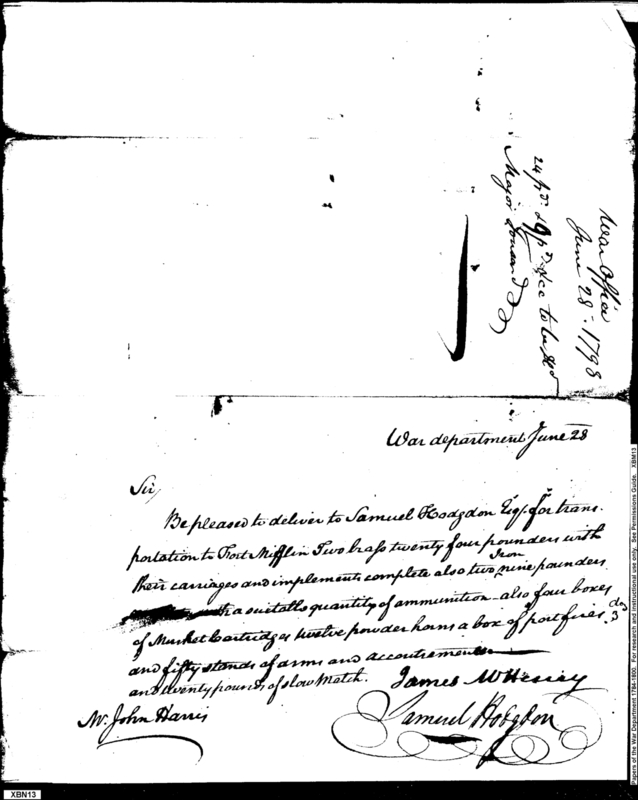 War Office
June 28th. 1798
24 pr. & 9 pr. &c to be
Major
War department June 28
Sir,
Be pleased to deliver to Samuel Hodgdon Esqr. for trans-
portation to Fort Mifflin Two brass twenty four pounders with
their carriages and implements complete also two Iron nine pounders
a suitable quantity of ammunition - also four boxes
of Musket Cartridges twelve powder horns a box of portfires
and fifty stands of arms and accoutrements
and twenty pounds of slow Match.
James McHenry
Mr. John Harris
Samuel Hodgdon
Papers of the War Department 1784-1800. For research and instructional use only. See Permissions Guide. XBM13
XBN13